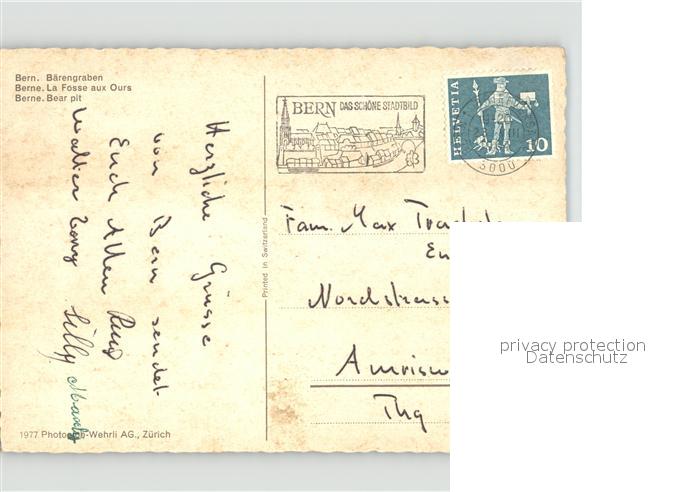 Bern. Bärengraben
Berne. La Fosse aux Ours
Berne. Bear pit
Herzliche Grüsse
von Bern sendet
Euch Allen
Walter
BERN DAS SCHÖNE STADTBILD
HELVETIA
10
3000
Printed in Switzerland
Fam. Max
Nordstrasse
Thg
1977 Wehrli AG., Zürich
privacy protection
Datenschutz